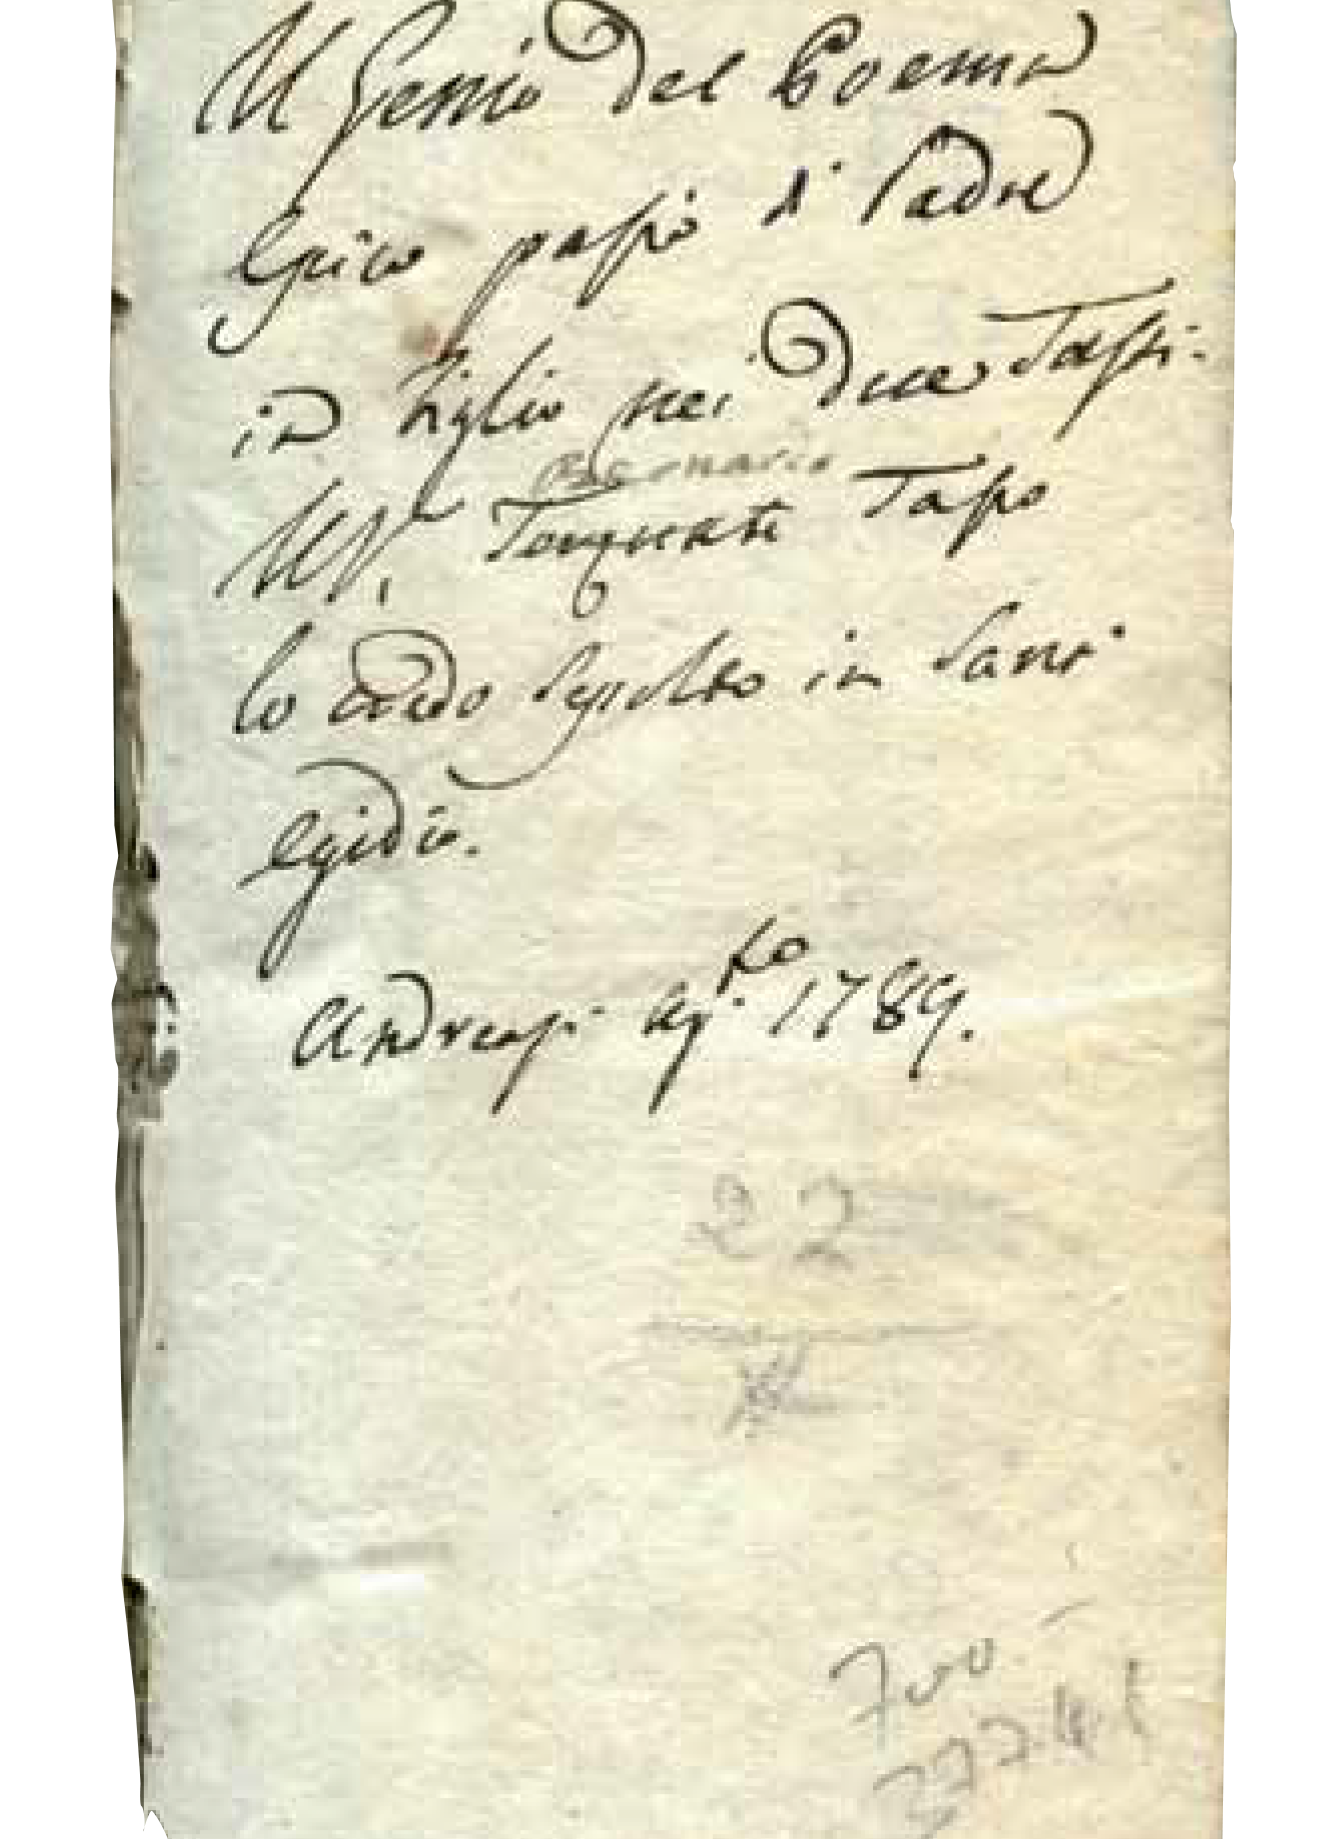 Il Genio del Poema
Epico passò di Padre
in Figlio nei due Tassi.
Bernardo
Torquato Tasso
lo credo sepolto in Sant
Egidio.
Andreasi Ag.to 1789.
22
700